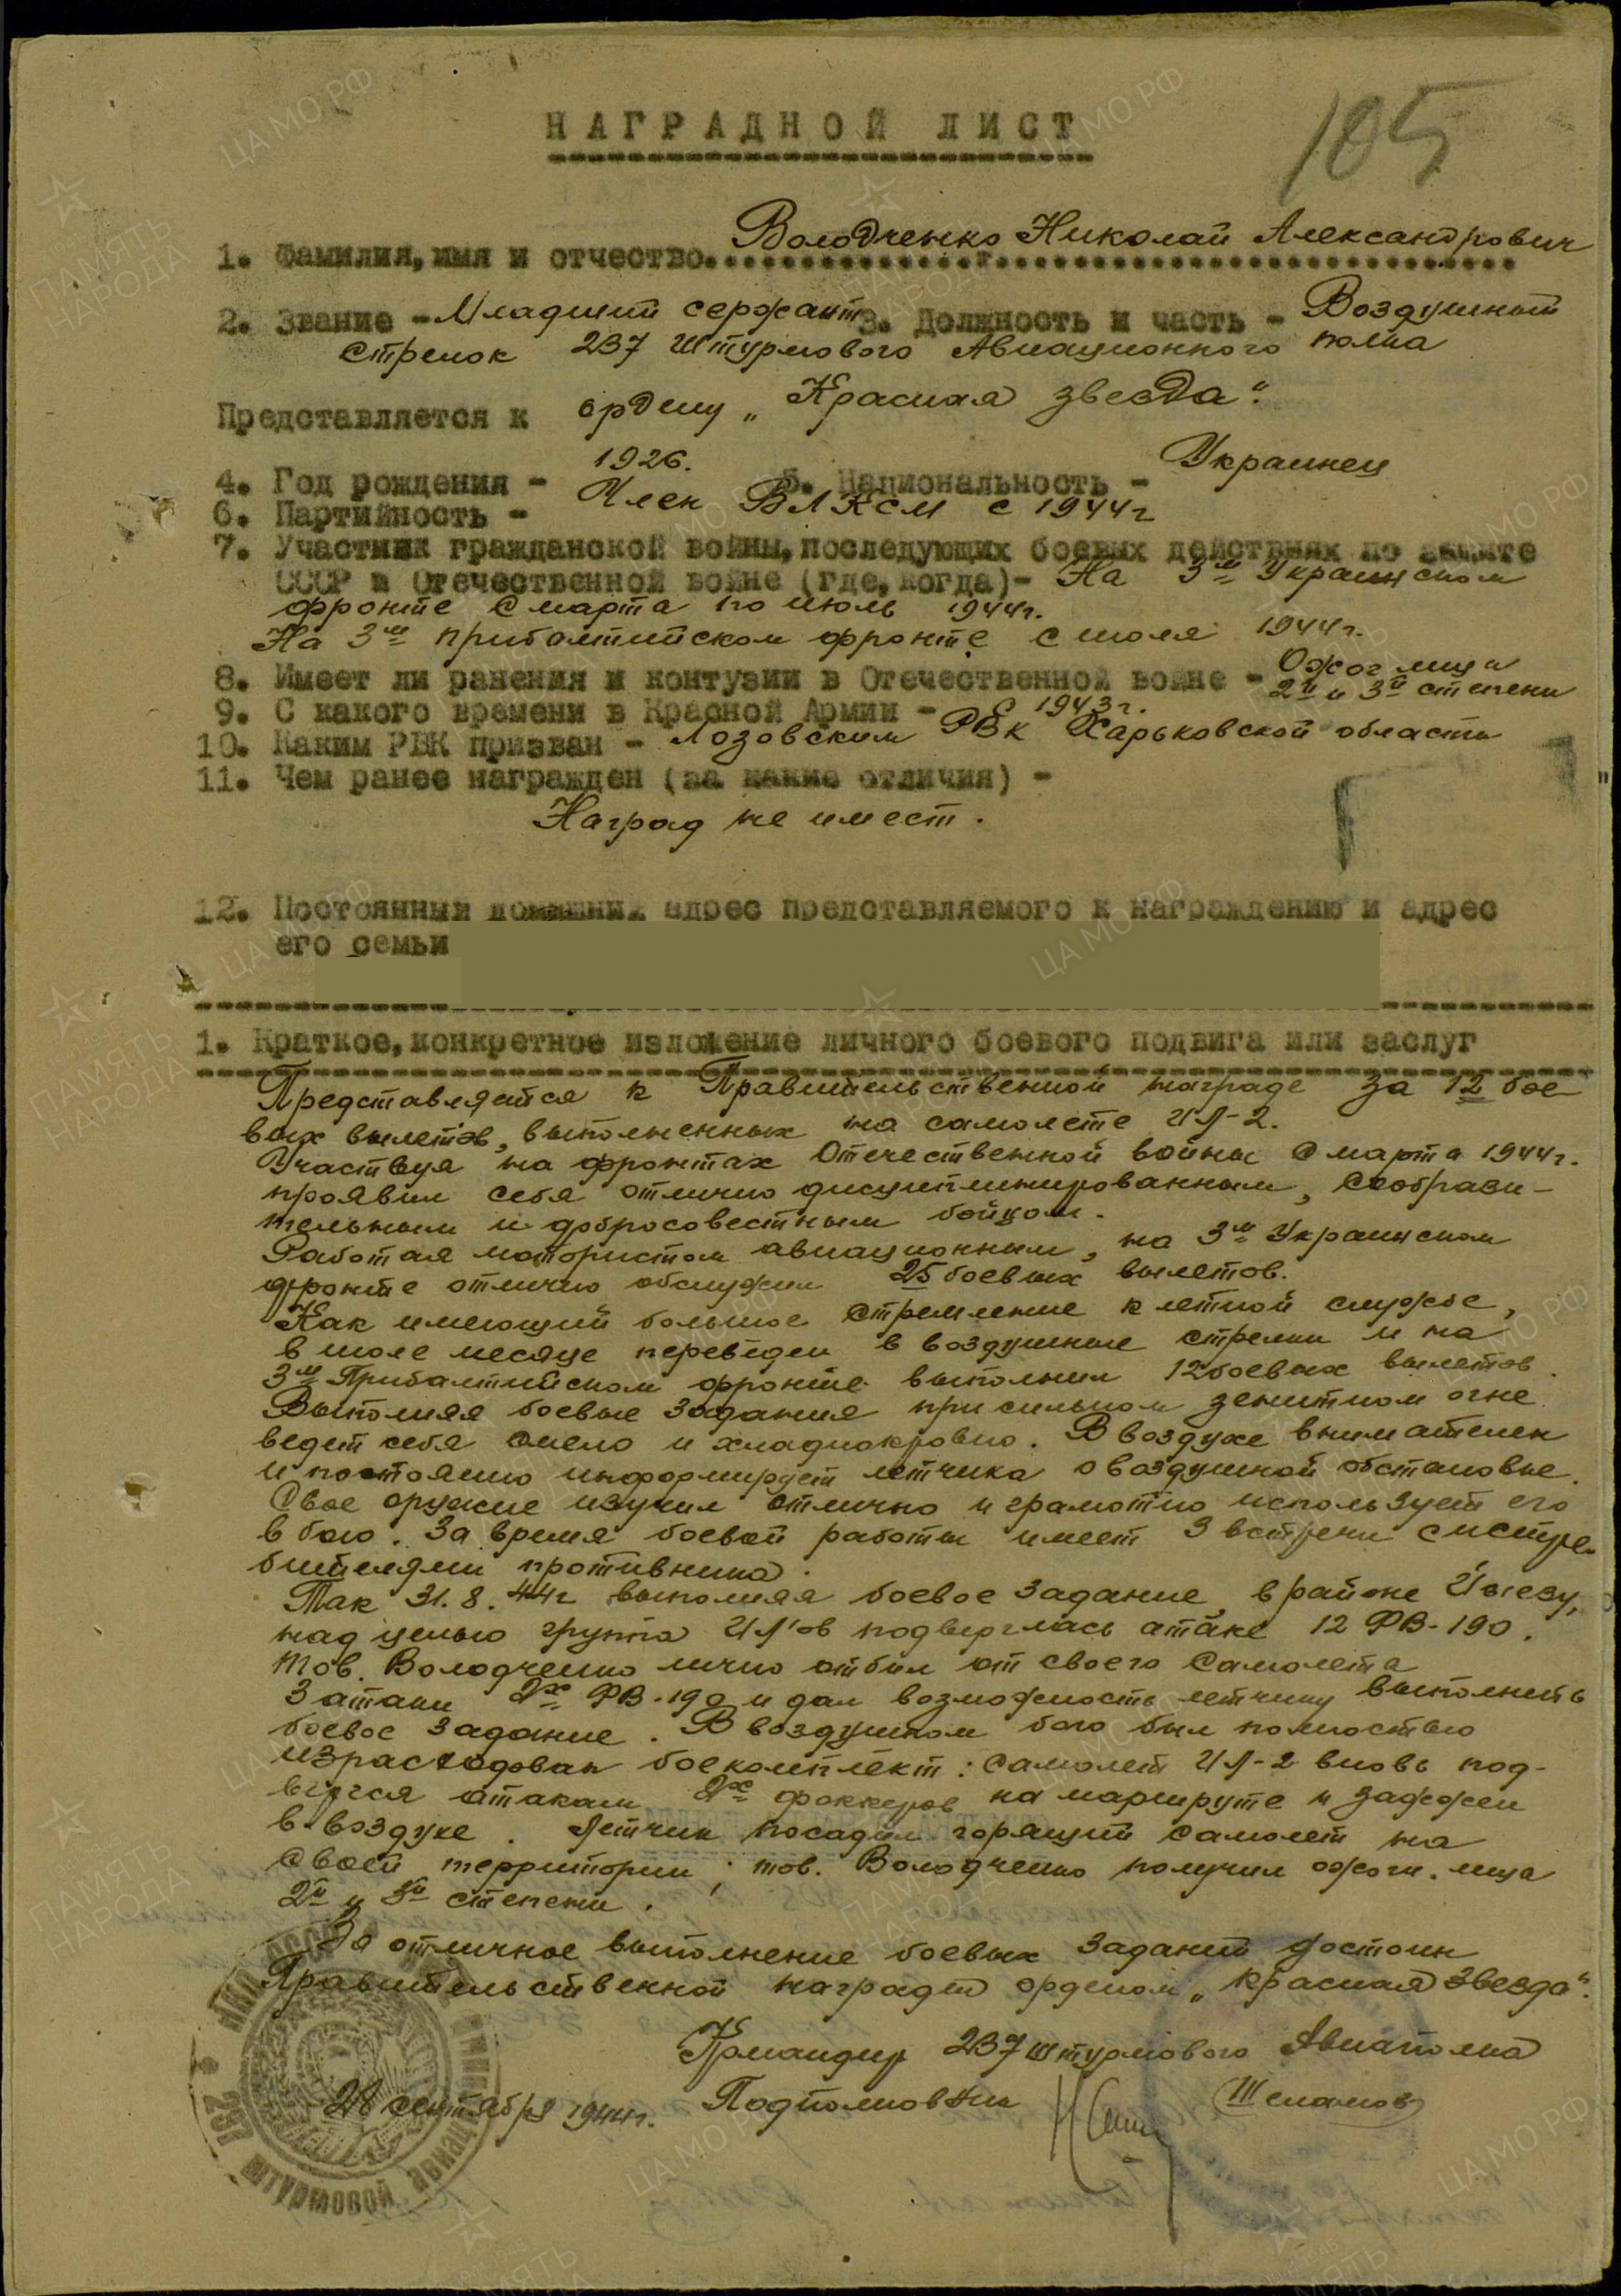 105
НАГРАДНОЙ ЛИСТ
1. Фамилия, имя и отчество. Володченко Николай Александрович
2. Звание - Младший сержант 3. Должность и часть - Воздушный
стрелок 237 Штурмового Авиационного полка
Представляется к ордену „Красная звезда".
4. Год рождения - 1926. 5. Национальность - Украинец
6. Партийность - Член ВЛКСМ с 1944г
7. Участник гражданской войны, последующих боевых действиях по защите
СССР и Отечественной войне (где, когда)- На 3м Украинском
фронте с марта по июль 1944г.
На 3м прибалтийском фронте с июля 1944г.
8. Имеет ли ранения и контузии в Отечественной войне - Ожог лица
2й и 3й степени
9. С какого времени в Красной Армии - с 1943г.
10. Каким РВК призван - Лозовским РВК Харьковской области
11. Чем ранее награжден (за какие отличия) -
Наград не имеет.
12. Постоянный домашний адрес представляемого к награждению и адрес
его семьи
1. Краткое, конкретное изложение личного боевого подвига или заслуг
Представляется к Правительственной награде за 12 бое
вых вылетов, выполненных на самолете ИЛ-2.
Участвуя на фронтах Отечественной войны с марта 1944г.
проявил себя отлично дисциплинированным, сообрази-
тельным и добросовестным бойцом.
Работая мотористом авиационным, на 3м Украинском
фронте отлично обслужил 25 боевых вылетов.
Как имеющий большое стремление к летной службе,
в июле месяце переведен в воздушные стрелки и на
3м Прибалтийском фронте выполнил 12 боевых вылетов.
Выполняя боевые задания при сильном зенитном огне
ведет себя смело и хладнокровно. В воздухе внимателен
и постоянно информирует летчика о воздушной обстановке.
Свое оружие изучил отлично и грамотно использует его
в бою. За время боевой работы имеет 3 встречи с истре-
бителями противника.
Так 31.8.44г выполняя боевое задание в районе
над целью группа ИЛ'ов подверглась атаке 12 ФВ-190.
тов. Володченко лично отбил от своего самолета
3 атаки 2х ФВ-190 и дал возможность летчику выполнить
боевое задание. В воздушном бою был полностью
израсходован боекомплект: самолет ИЛ-2 вновь под-
вергся атакам 2х фоккеров на маршруте и зажжен
в воздухе. Летчик посадил горящий самолет на
своей территории; тов. Володченко получил ожоги лица
2й и 3й степени.
За отличное выполнение боевых заданий достоин
Правительственной награды орденом „Красная Звезда".
Командир 237 штурмового Авиаполка
Подполковник Шепамов
28 сентября 1944г.
237 ШТУРМОВОЙ АВИАЦИОН
ЦА МО РФ
ПАМЯТЬ НАРОДА